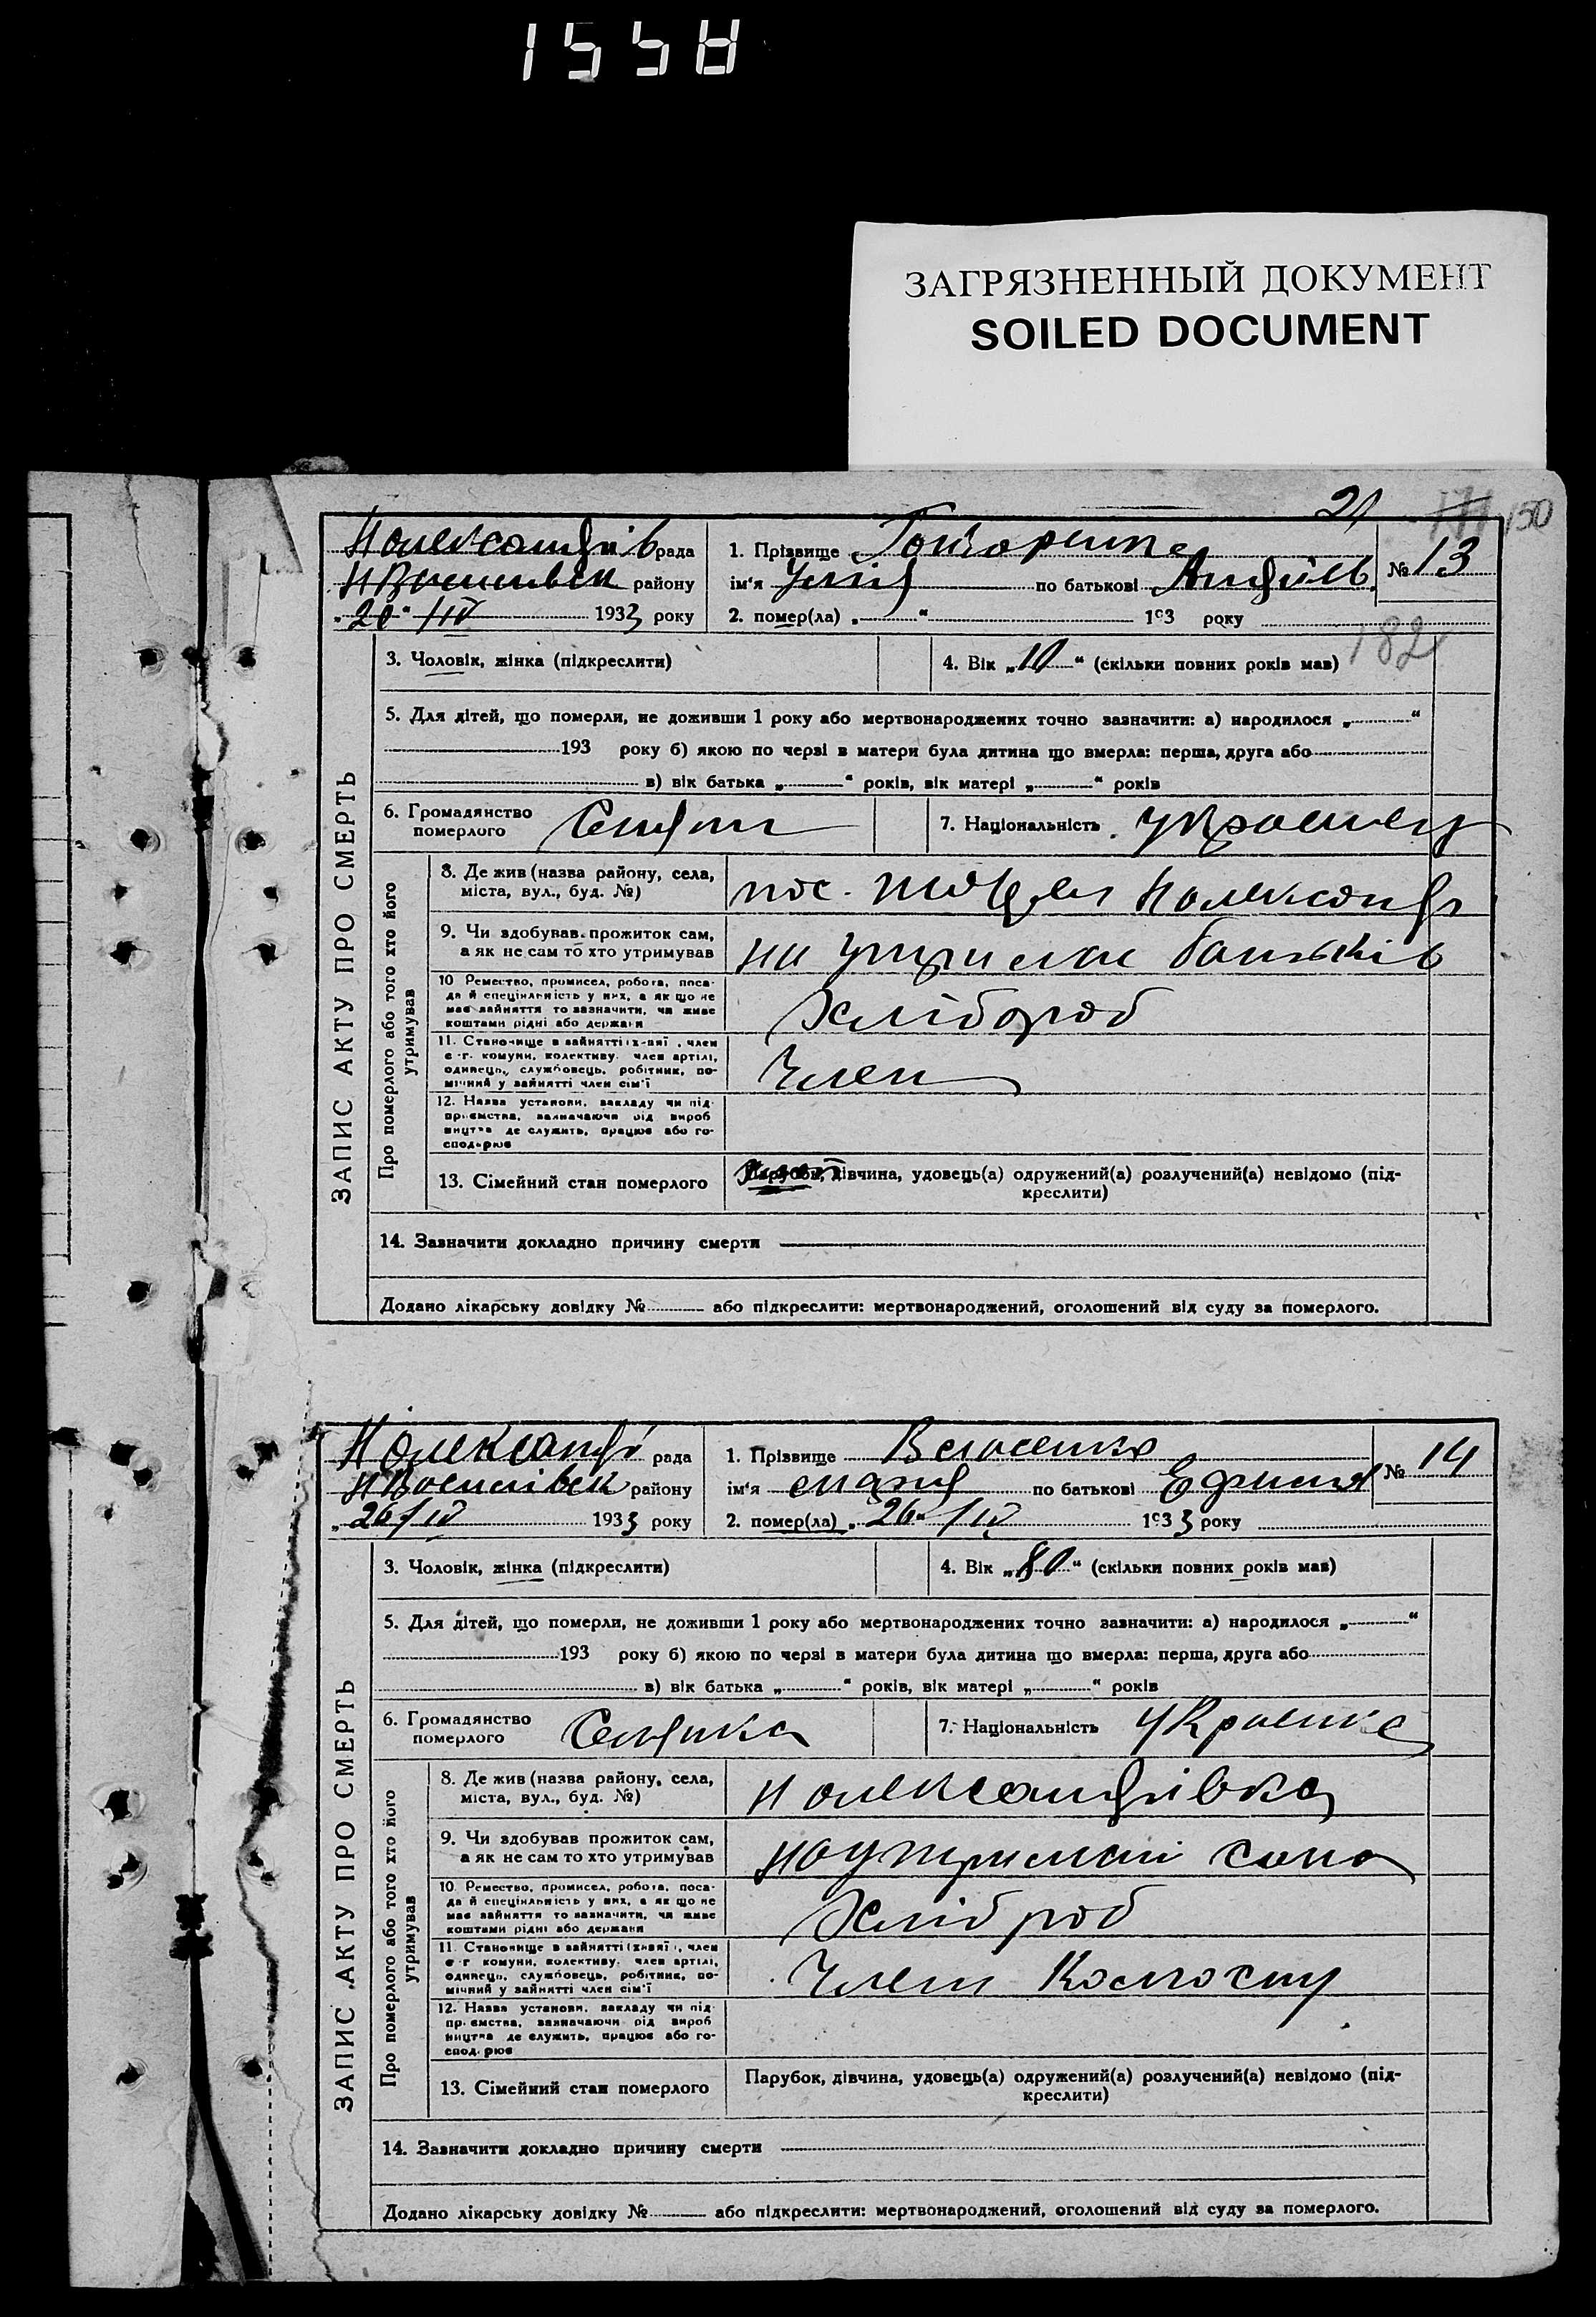 1558
ЗАГРЯЗНЕННЫЙ ДОКУМЕНТ
SOILED DOCUMENT
21
150
ЗАПИС АКТУ ПРО СМЕРТЬ
рада
району
"20" IV 1933 року
1. Прізвище
ім'я по батькові
№ 13
2. помер(ла) „ “ 193 року
182
3. Чоловік, жінка (підкреслити)
4. Вік „10“ (скільки повних років мав)
5. Для дітей, що померли, не доживши 1 року або мертвонароджених точно зазначити: а) народилося „ “
193 року б) якою по черзі в матери була дитина що вмерла: перша, друга або
в) вік батька „ “ років, вік матері „ “ років
6. Громадянство померлого
7. Національність Украинец
Про померлого або того хто його утримував
8. Де жив (назва району, села, міста, вул., буд. №)
9. Чи здобував прожиток сам, а як не сам то хто утримував
на утриманні батьків
10 Ремество, промисел, робота, посада й спеціяльність у них, а як що не має зайняття то зазначити, чи живе коштами рідні або держави
Хлібороб
11. Становище в зайнятті (хазяї, член с.-г. комуни, колективу, член артілі, одинець, службовець, робітник, помічний у зайнятті член сім'ї
Член
12. Назва установи, закладу чи підприємства, зазначаючи рід виробництва де служить, працює або господарює
13. Сімейний стан померлого
Парубок, дівчина, удовець(а) одружений(а) розлучений(а) невідомо (підкреслити)
14. Зазначити докладно причину смерти
Додано лікарську довідку № або підкреслити: мертвонароджений, оголошений від суду за померлого.
ЗАПИС АКТУ ПРО СМЕРТЬ
рада
району
„26/IV 1933 року
1. Прізвище Власенко
ім'я по батькові
№ 14
2. помер(ла) „26“ IV 1933 року
3. Чоловік, жінка (підкреслити)
4. Вік „80“ (скільки повних років мав)
5. Для дітей, що померли, не доживши 1 року або мертвонароджених точно зазначити: а) народилося „ “
193 року б) якою по черзі в матери була дитина що вмерла: перша, друга або
в) вік батька „ “ років, вік матері „ “ років
6. Громадянство померлого Селянка
7. Національність Украинка
Про померлого або того хто його утримував
8. Де жив (назва району, села, міста, вул., буд. №)
Н Олександрівка
9. Чи здобував прожиток сам, а як не сам то хто утримував
на утримані сина
10. Ремество, промисел, робота, посада й спеціяльність у них, а як що не має зайняття то зазначити, чи живе коштами рідні або держави
Хлібороб
11. Становище в зайнятті (хазяї, член с.-г. комуни, колективу, член артілі, одинець, службовець, робітник, помічний у зайнятті член сім'ї
Член Колгоспу
12. Назва установи, закладу чи підприємства, зазначаючи рід виробництва де служить, працює або господарює
13. Сімейний стан померлого
Парубок, дівчина, удовець(а) одружений(а) розлучений(а) невідомо (підкреслити)
14. Зазначити докладно причину смерти
Додано лікарську довідку № або підкреслити: мертвонароджений, оголошений від суду за померлого.